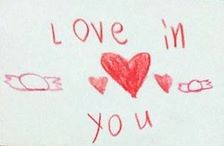 Love in
you